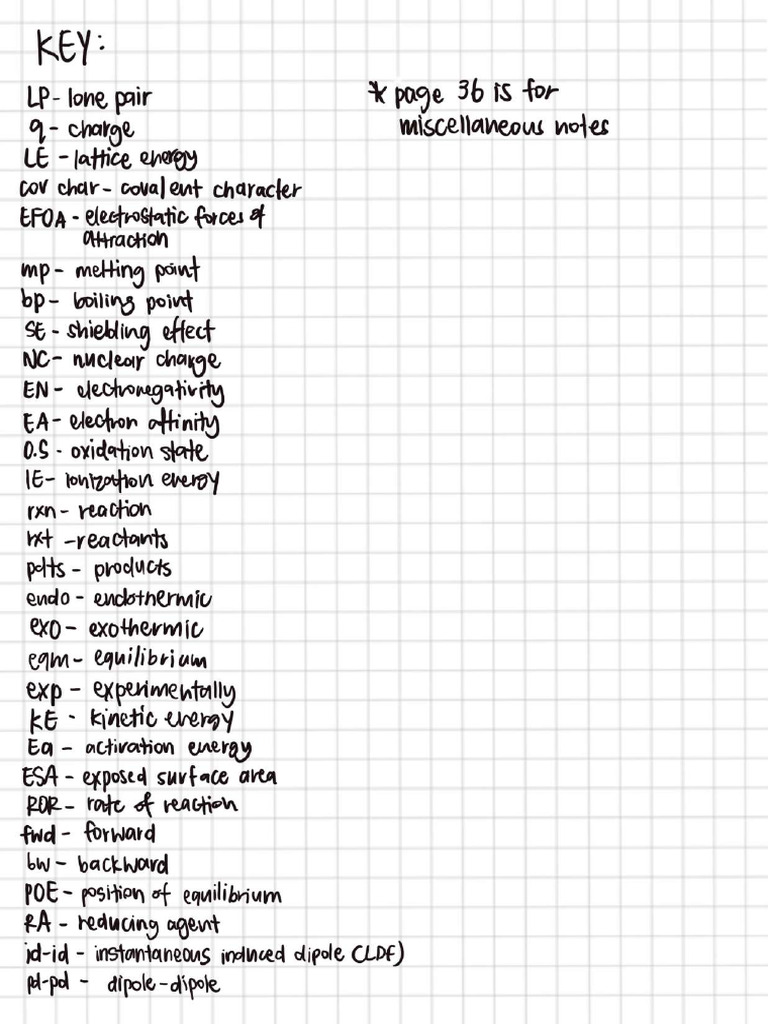 KEY:
LP - lone pair
q - charge
LE - lattice energy
cov char - covalent character
EFOA - electrostatic forces of
attraction
mp - melting point
bp - boiling point
SE - shielding effect
NC - nuclear charge
EN - electronegativity
EA - electron affinity
O.S - oxidation state
IE - ionization energy
rxn - reaction
rxt - reactants
pdts - products
endo - endothermic
exo - exothermic
eqm - equilibrium
exp - experimentally
KE - kinetic energy
Ea - activation energy
ESA - exposed surface area
ROR - rate of reaction
fwd - forward
bw - backward
POE - position of equilibrium
RA - reducing agent
id-id - instantaneous induced dipole (LDF)
pd-pd - dipole-dipole
* page 36 is for
miscellaneous notes